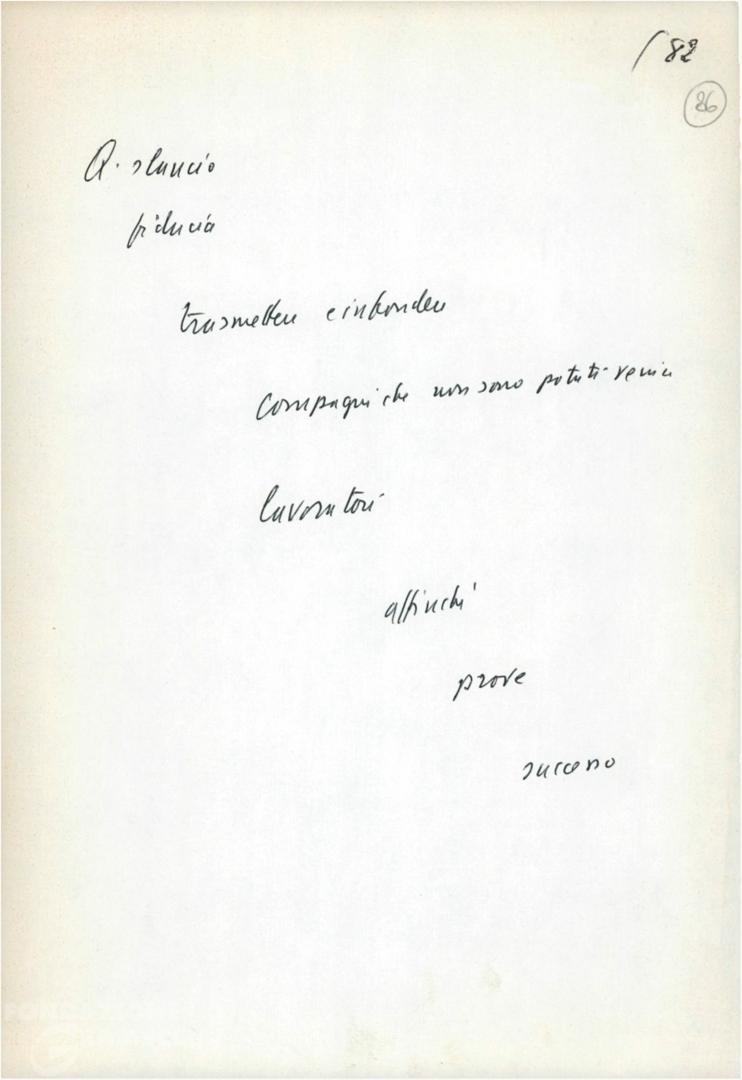 / 82
86
Q. slancio
fiducia
trasmettere e infondere
compagni che non sono potuti venire
lavoratori
affinché
prove
successo